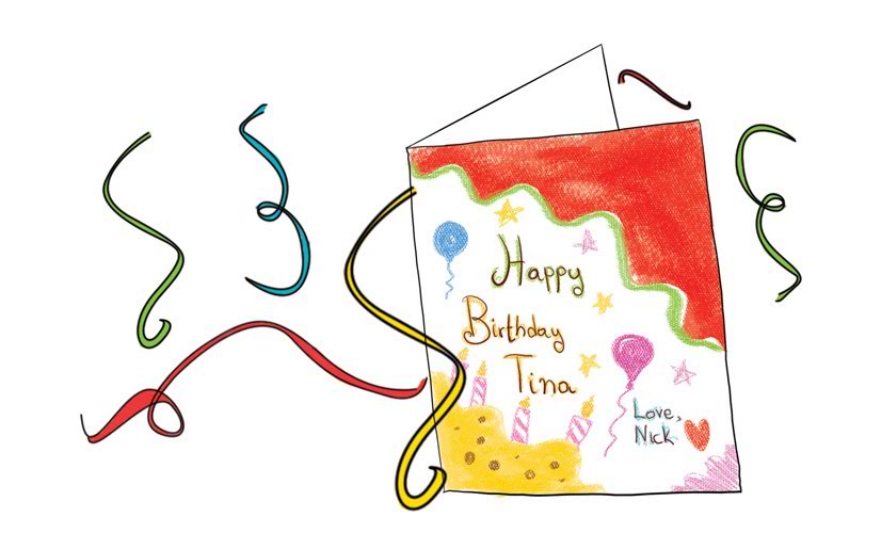 Happy
Birthday
Tina
Love,
Nick